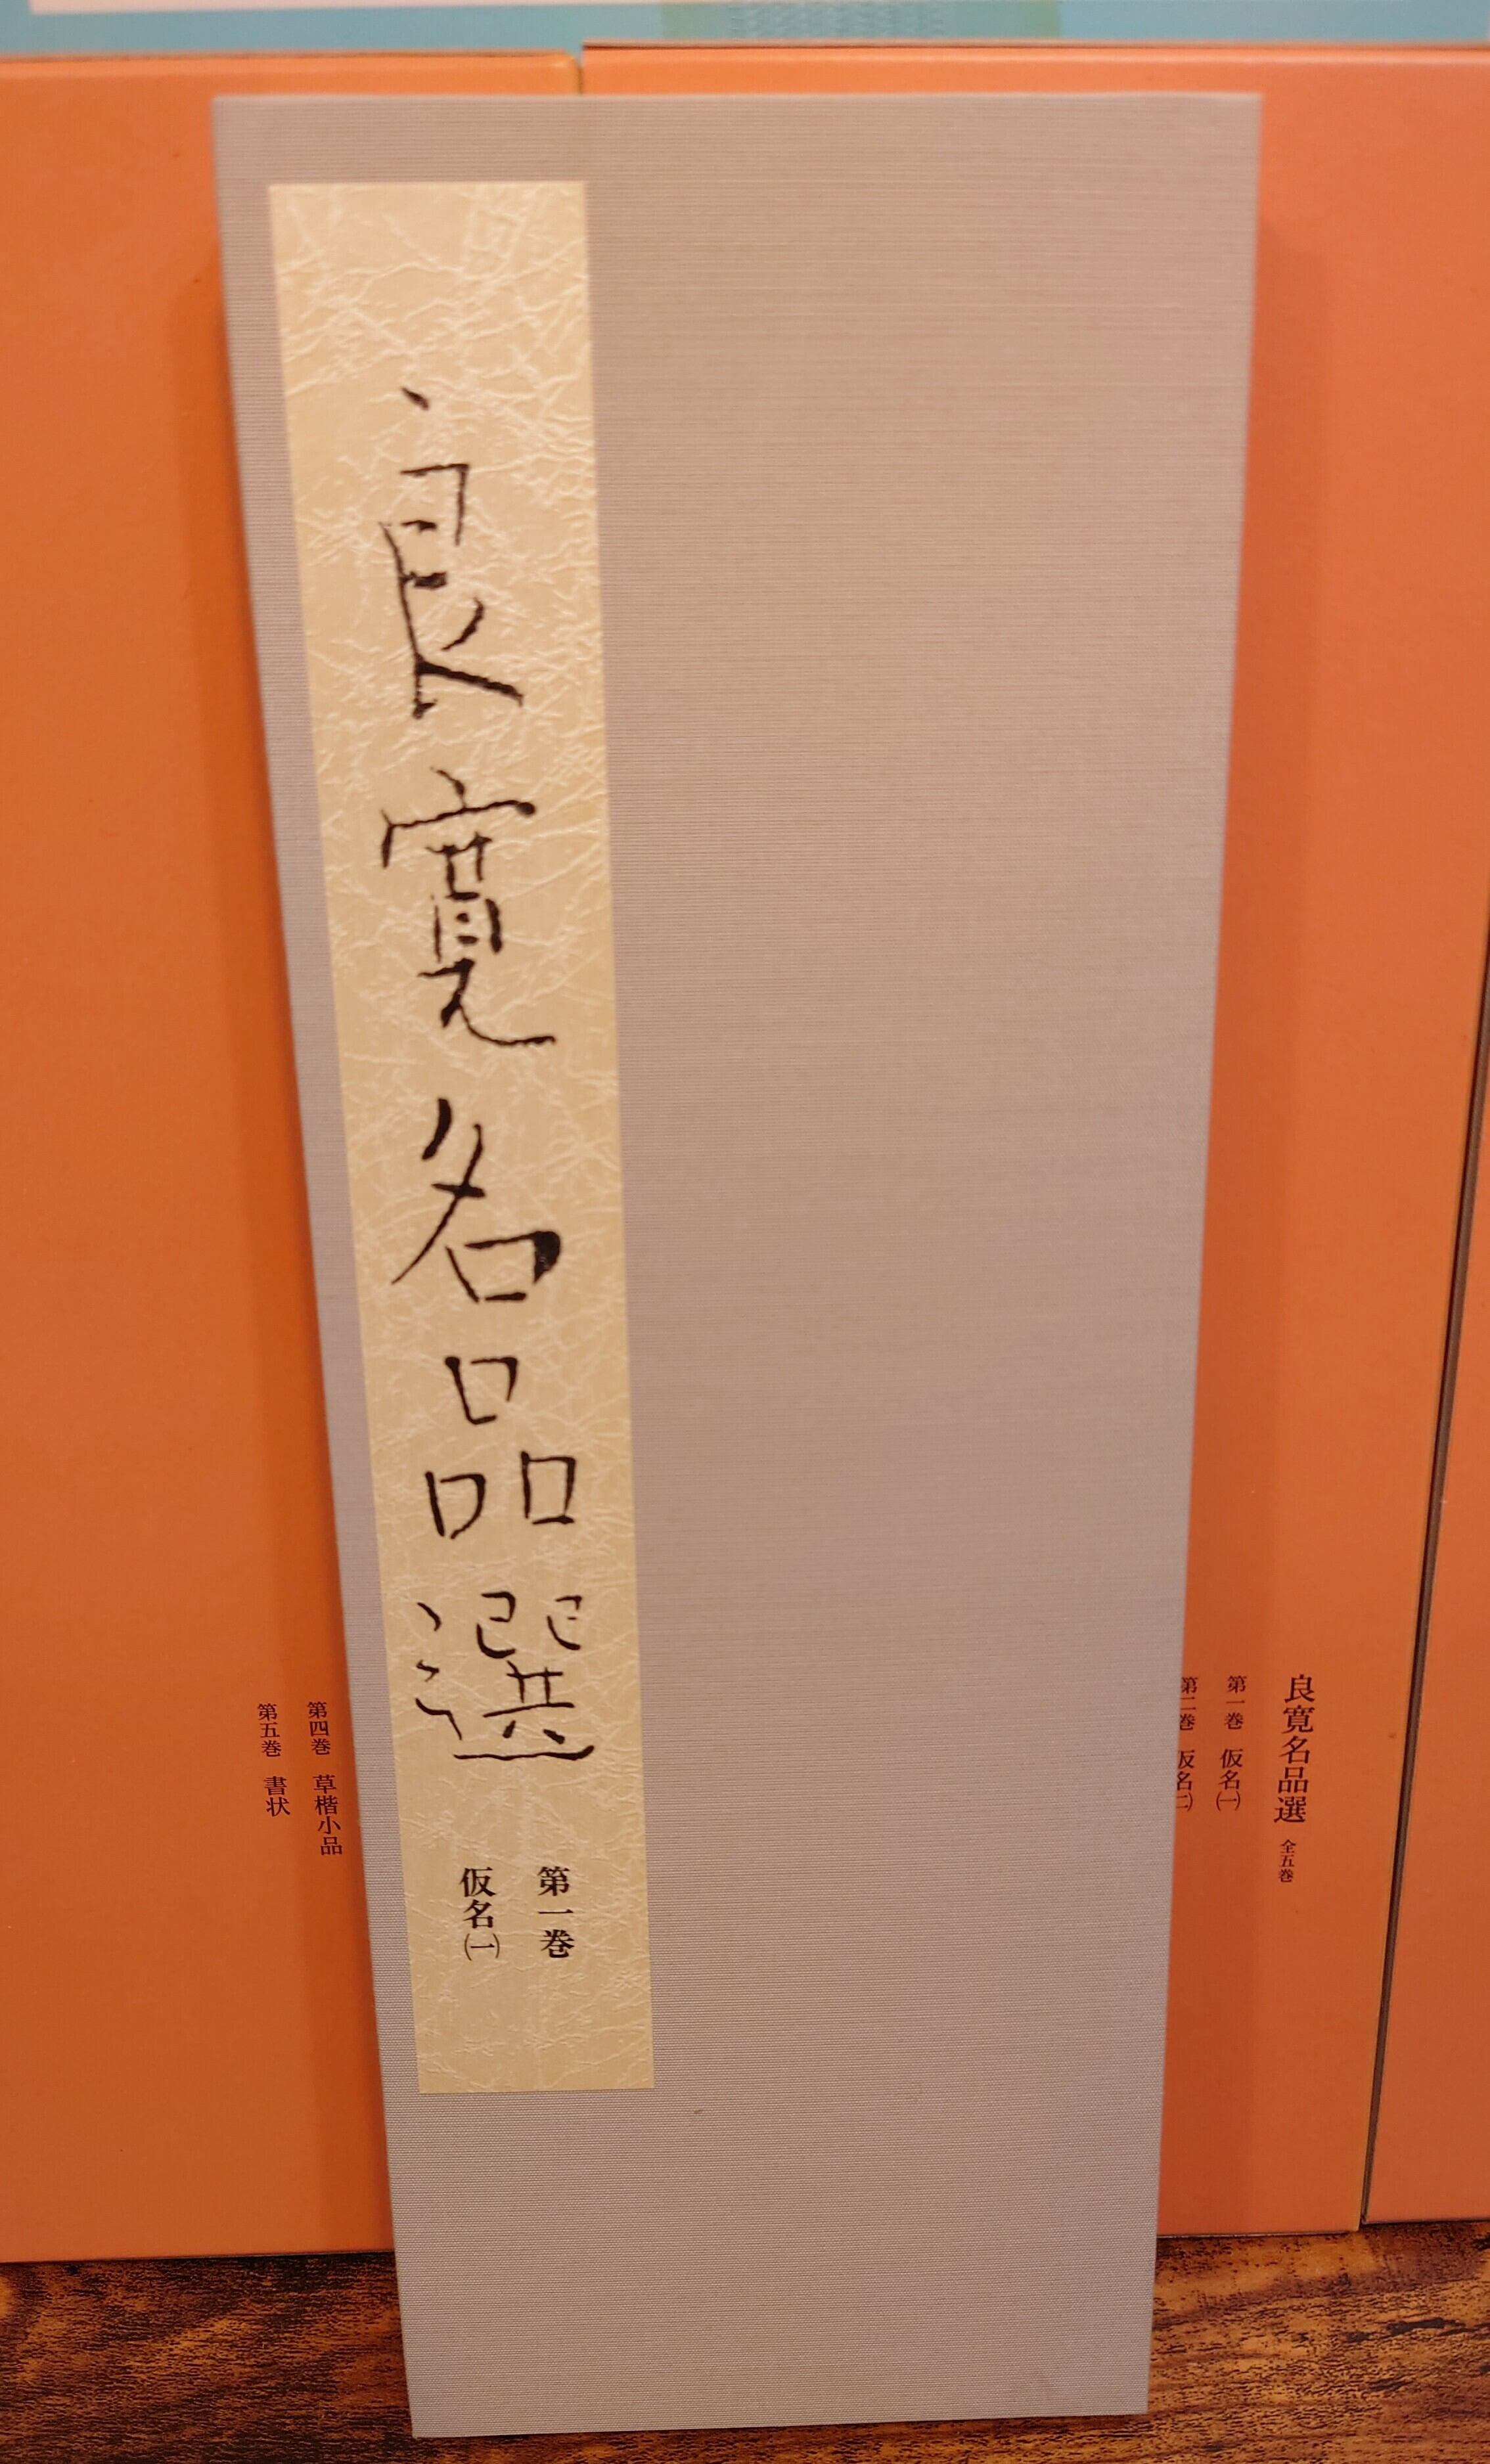 良寛名品選
第一巻
仮名㈠
良寛名品選 全五巻
第一巻 仮名㈠
第二巻 仮名㈡
第四巻 草楷小品
第五巻 書状